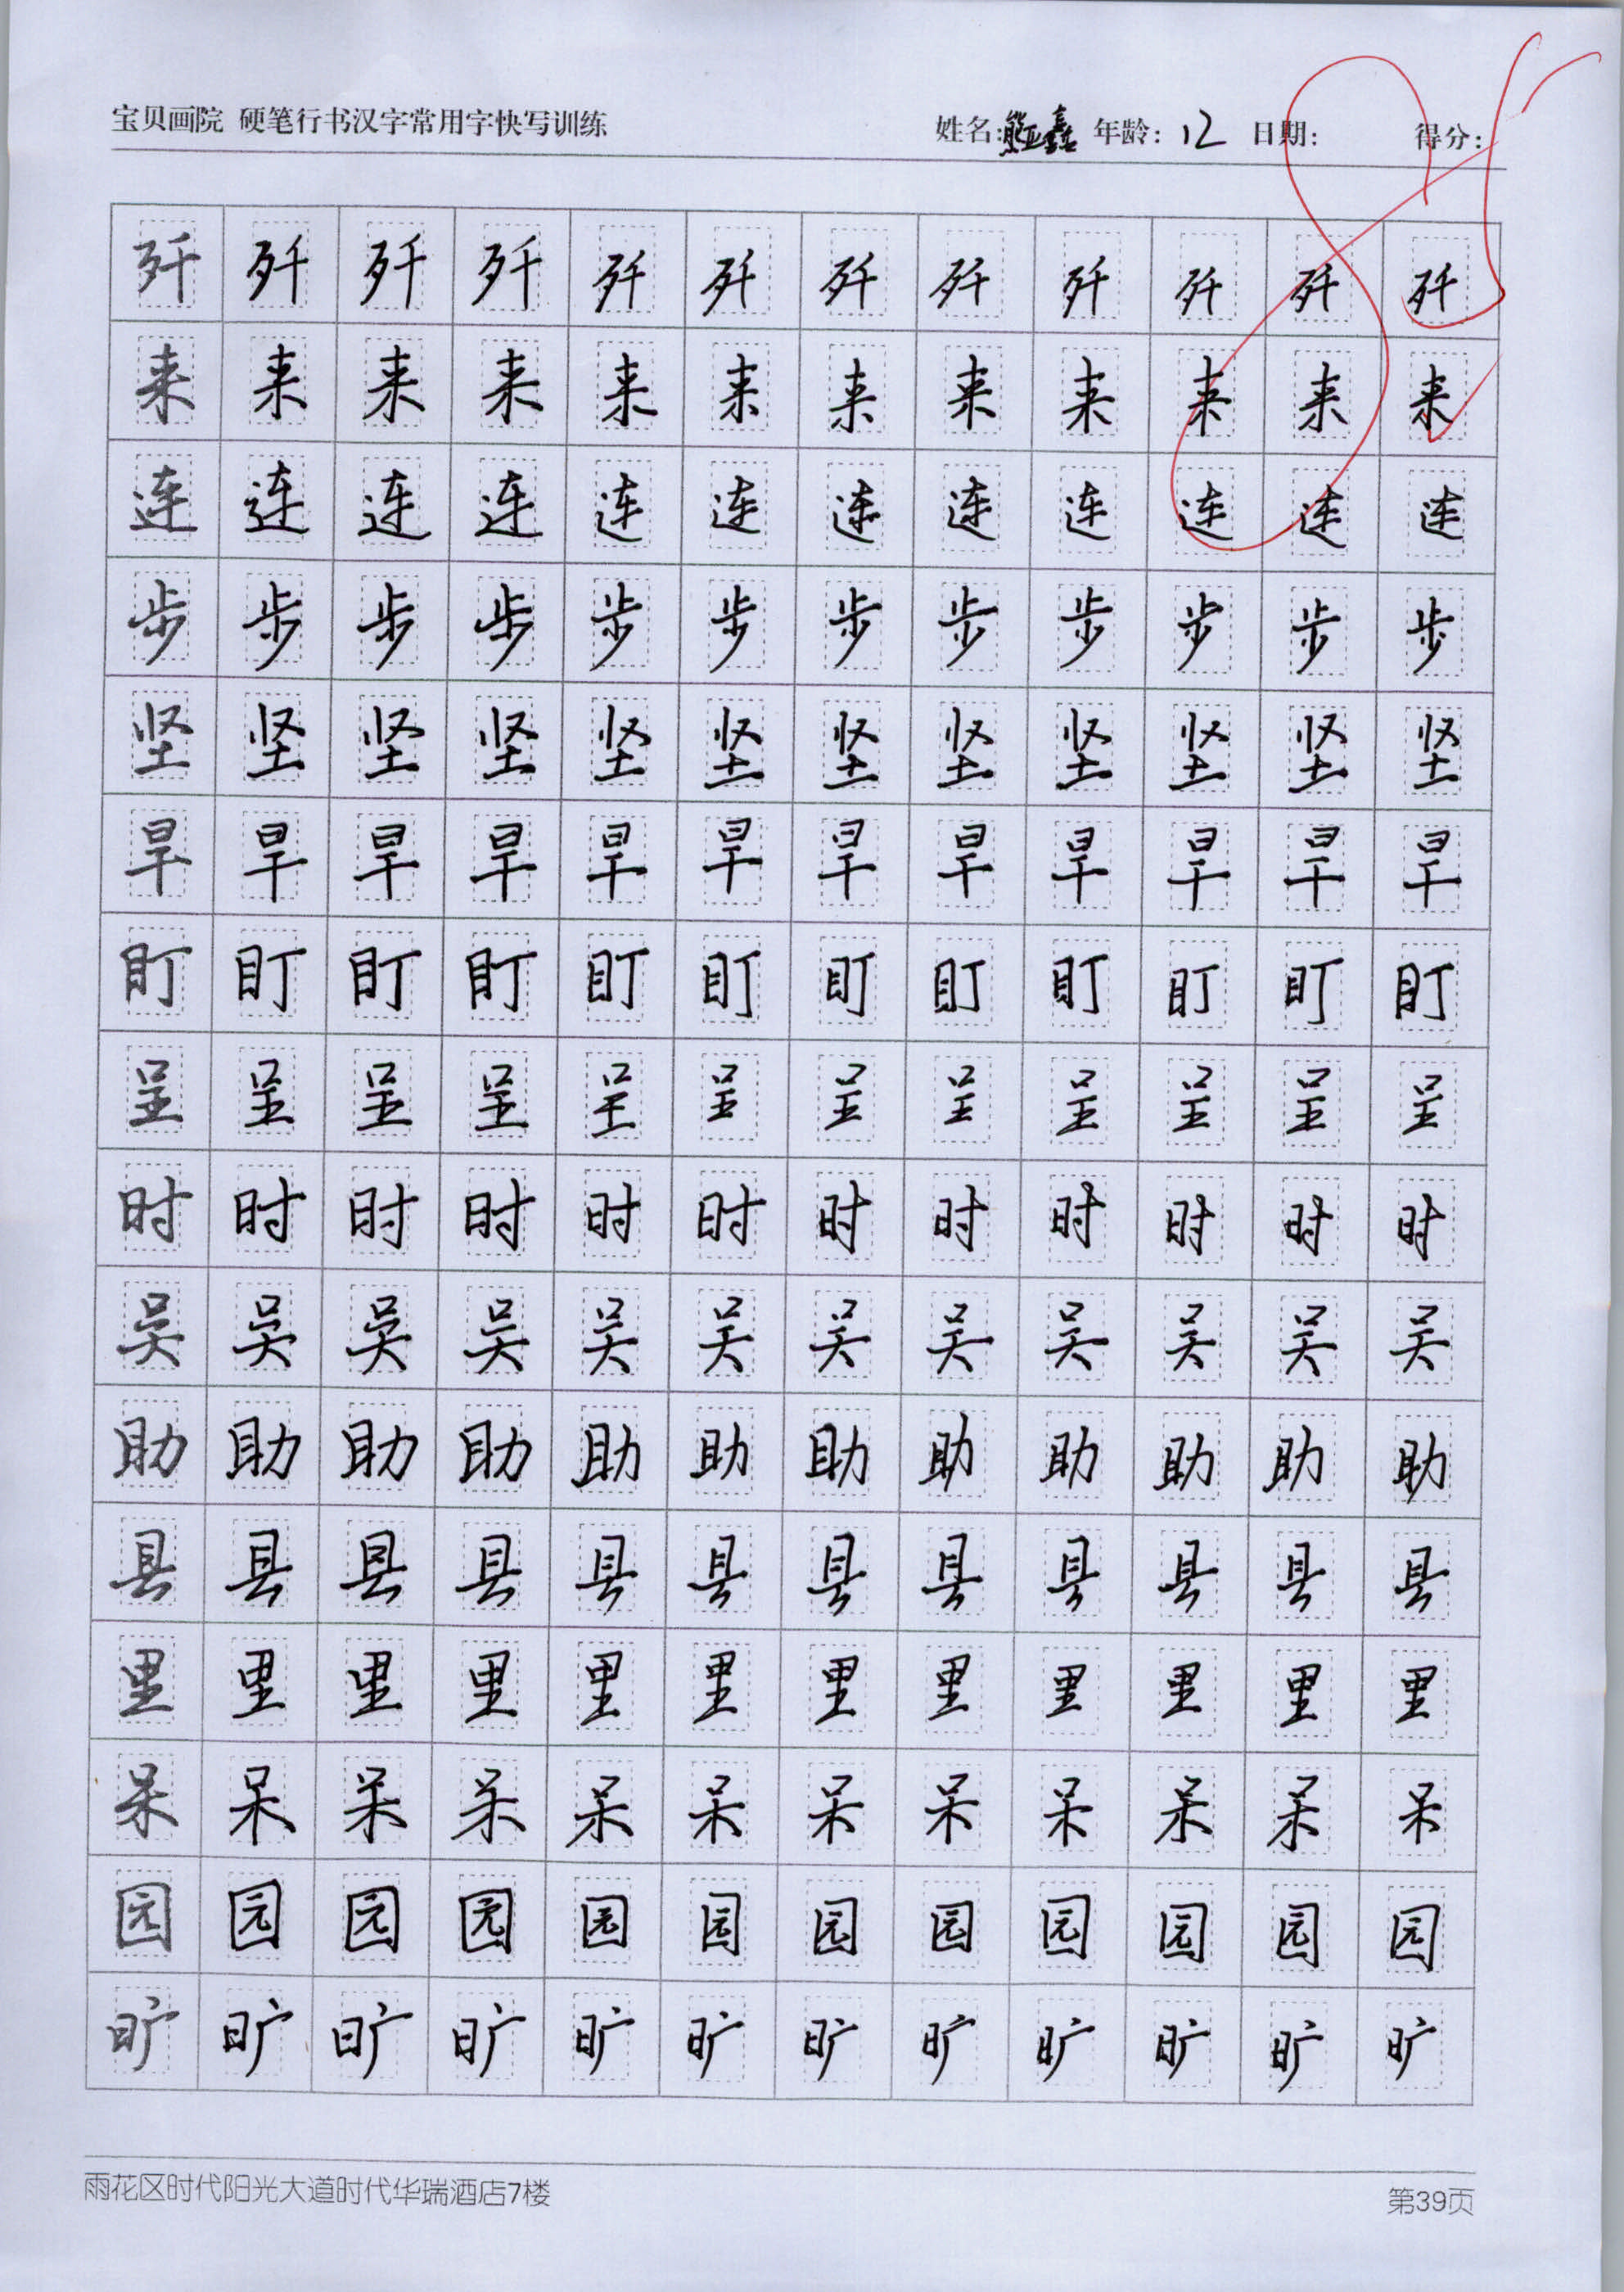 宝贝画院 硬笔行书汉字常用字快写训练 姓名: 熊亚鑫 年龄: 12 日期: 得分: 85
歼 歼 歼 歼 歼 歼 歼 歼 歼 歼 歼 歼
来 来 来 来 来 来 来 来 来 来 来 来
连 连 连 连 连 连 连 连 连 连 连 连
步 步 步 步 步 步 步 步 步 步 步 步
坚 坚 坚 坚 坚 坚 坚 坚 坚 坚 坚 坚
旱 旱 旱 旱 旱 旱 旱 旱 旱 旱 旱 旱
盯 盯 盯 盯 盯 盯 盯 盯 盯 盯 盯 盯
呈 呈 呈 呈 呈 呈 呈 呈 呈 呈 呈 呈
时 时 时 时 时 时 时 时 时 时 时 时
吴 吴 吴 吴 吴 吴 吴 吴 吴 吴 吴 吴
助 助 助 助 助 助 助 助 助 助 助 助
县 县 县 县 县 县 县 县 县 县 县 县
里 里 里 里 里 里 里 里 里 里 里 里
呆 呆 呆 呆 呆 呆 呆 呆 呆 呆 呆 呆
园 园 园 园 园 园 园 园 园 园 园 园
旷 旷 旷 旷 旷 旷 旷 旷 旷 旷 旷 旷
雨花区时代阳光大道时代华瑞酒店7楼 第39页